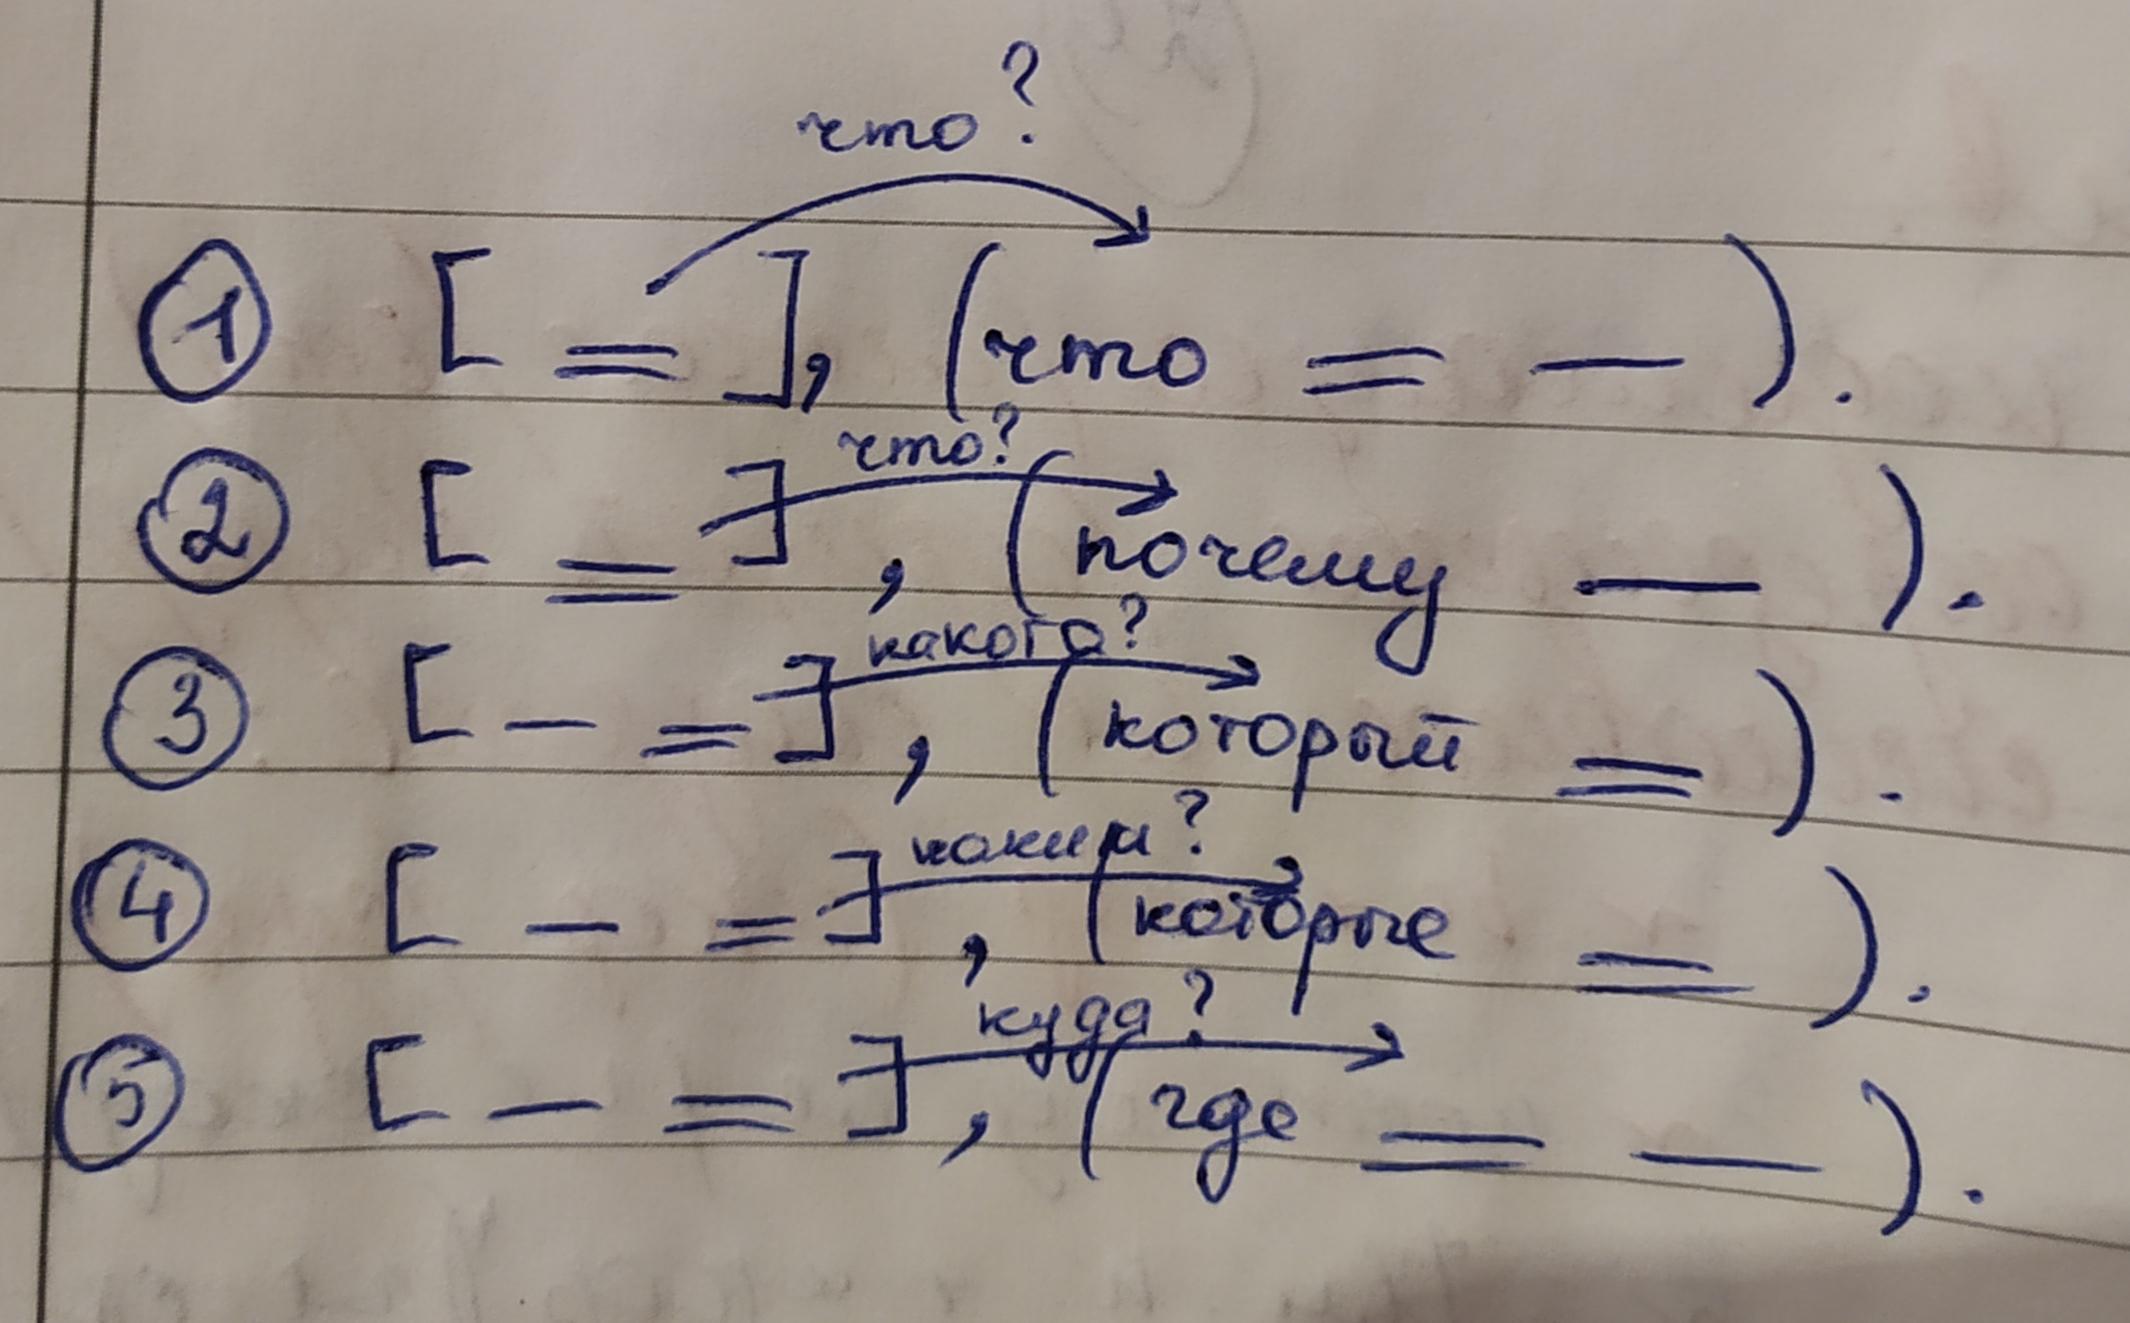 что?
① [ = ], (что = — ).
что?
② [ = ], (почему — ).
какого?
③ [ — = ], (который = ).
каким?
④ [ — = ], (которые = ).
куда?
⑤ [ — = ], (где = — ).